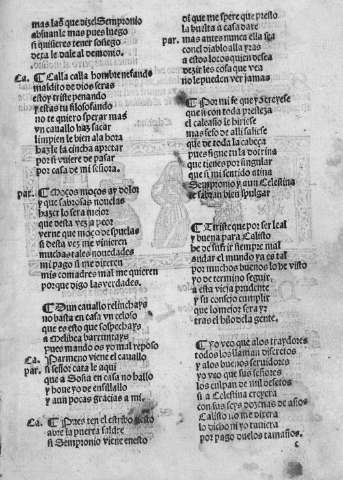 mas lañ que dizel Sempronio
absuan le mas pues luego
si quisieres tener sosiego
dexa le vale al demonio.
Ca. Calla calla hombre nefando
maldito de dios seras
estoy triste penando
y estas tu filosofando
no te quiero sperar mas
vn cauallo haz sacar
limpien le bien ala hora
haz le la cincha apretar
por si viniere de pasar
por casa de mi señora.
par. Moços moços ay dolor
y que sabrosas nouelas
hazer lo sera mejor
que desta vez a peor
verne que moço despuelas
si desta vez me vinieren
muchas tales nouedades
mi pago si me dieren
mis comadres mal me quieren
porque digo las verdades.
Dun cauallo relinchays
no basta en casa vn celoso
que es esto que sospechays
a Melibea barruntays
pues mando os yo mal reposo
Ca. Parmeno viene el cauallo
par. si señor cara le aqui
que a Sosia en casa no hallo
y houe yo de ensillallo
y aun pocas gracias a mi.
Ca. Pues ten el estribo presto
abre la puerta saldre
si Sempronio viene enesto
di que me spere que presto
la buelta a casa dare
par. mas antes nunca ella sea
con el diablo alla yras
a estos locos quien desea
dezir les cosa que vea
no le pueden ver jamas
Por mi fe que yo creyese
que si con toda presteza
el calcaño le hiriese
mas seso de alli saliese
que de toda la cabeça
pues sigue tu la dotrina
que tienes por singular
que a mi sentido atina
Sempronio y aun Celestina
te sabran bien espulgar
Triste que por ser leal
y buena para Calisto
he de sufrir siempre mal
andar el mundo ya es tal
por muchos buenos lo he visto
yo de termino seguir
a esta vieja prudente
y su consejo cumplir
que lo mejor sera yr
tras el hilo dela gente.
Yo veo que alos traydores
todos los llaman discretos
y alos buenos seruidores
yo veo que sus señores
los culpan de mil defetos
si a Celestina creyera
con sus seys dozenas de años
Calisto no me dixera
lo dicho ni yo tuuiera
por pago duelos tamaños.
c